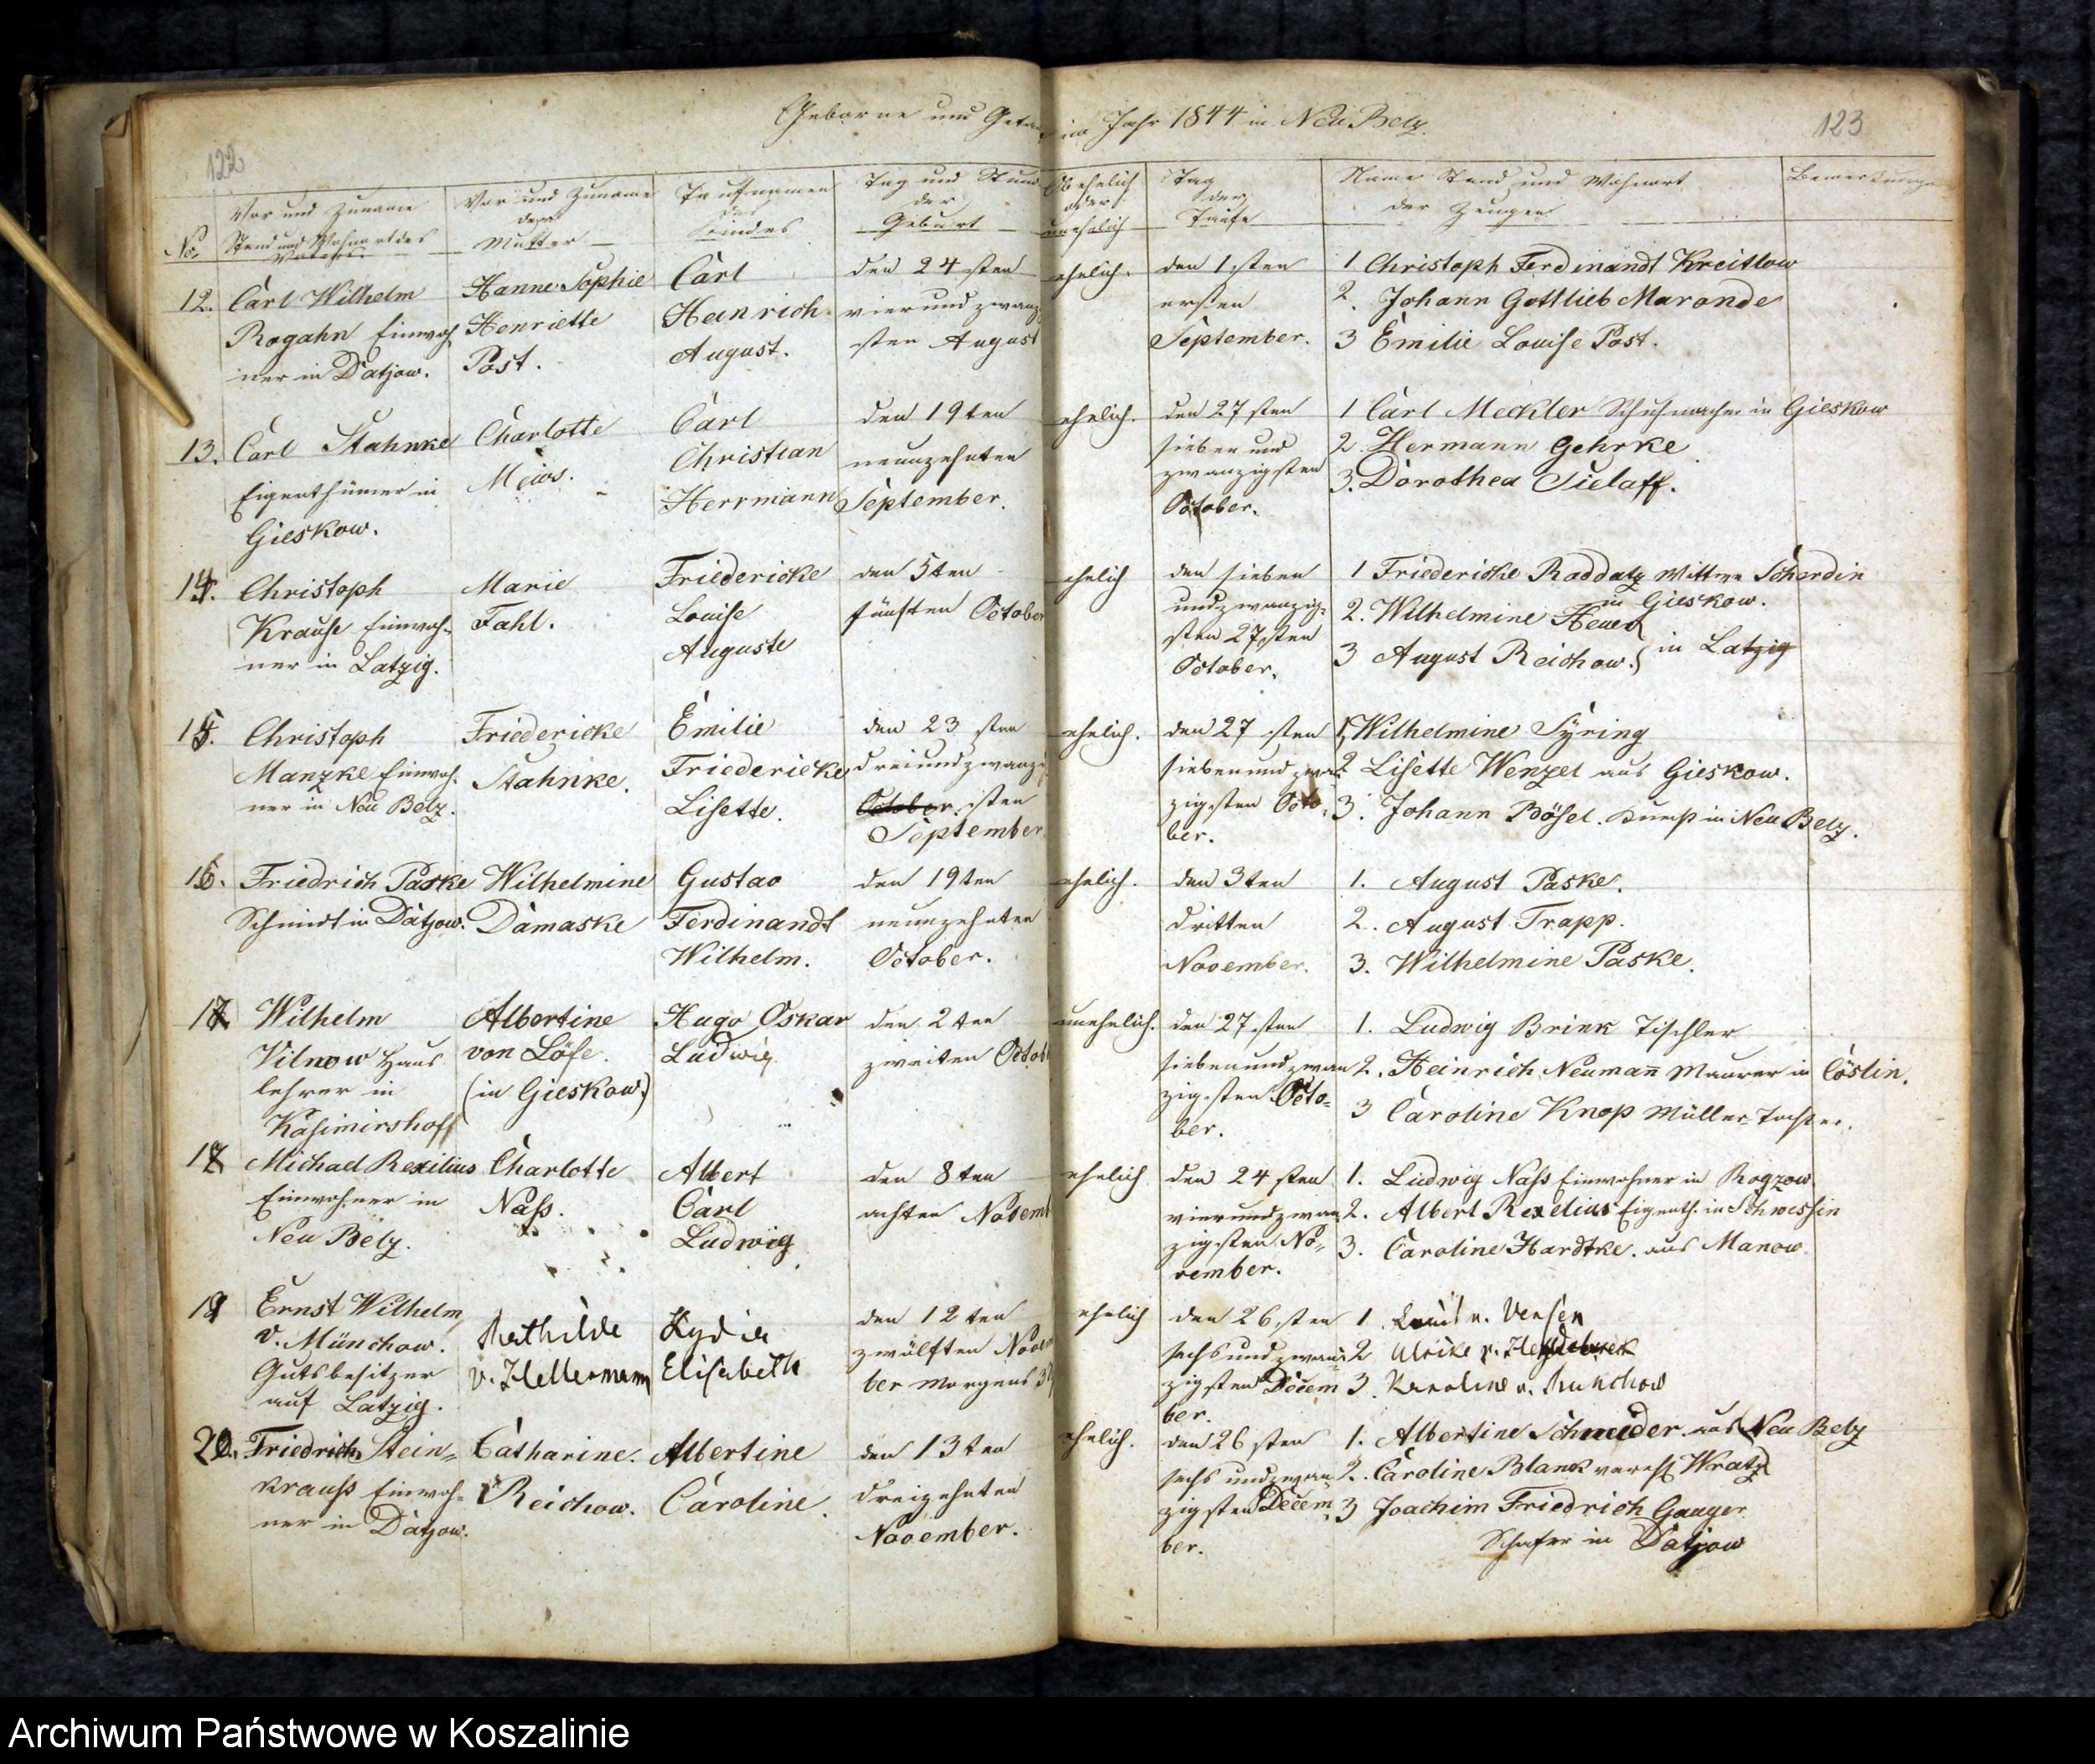 122
Geborne und Geta im Jahr 1844 in Neu Belz.
123
No.
Vor und Zuname
Stand und Wohnort des
Vaters
Vor und Zuname
der
Mutter
Taufnamen
des
Kindes
Tag und Stunde
der
Geburt
Ob ehelich
oder
unehelich
Tag
der
Taufe
Name Stand und Wohnort
der Zeugen
Bemerkungen
12.
Carl Wilhelm
Rogahn Einwoh
ner in Datjow.
Hanne Sophie
Henriette
Post.
Carl
Heinrich
August.
den 24sten
vierundzwanzig
sten August
ehelich.
den 1sten
ersten
September.
1 Christoph Ferdinandt Kreitlow
2. Johann Gottlieb Maronde
3 Emilie Louise Post.
13.
Carl Stahnke
Eigenthümer in
Gieskow.
Charlotte
Carl
Christian
Herrmann
den 19ten
neunzehnten
September.
ehelich.
den 27sten
sieben und
zwanzigsten
October.
1 Carl Meckler Schuhmacher in Gieskow
2. Hermann Gehrke
3. Dorothea Tielaff.
14.
Christoph
Krause Einwoh-
ner in Latzig.
Marie
Fahl.
Friedericke
Louise
Auguste
den 5ten
fünften October
ehelich
den sieben
undzwanzig-
sten 27sten
October.
1 Friedericke Raddatz Wittwe Scherdin
in Gieskow.
2. Wilhelmine Heuer
3 August Reichow. in Latzig
15.
Christoph
Manzke Einwoh-
ner in Neu Belz.
Friedericke
Stahnke.
Emilie
Friedericke
Lisette.
den 23 sten
dreiundzwanzig
October. sten
September
ehelich.
den 27 sten
siebenundzwan
zigsten Octo-
ber.
1, Wilhelmine Syring
2 Lisette Wenzel aus Gieskow.
3. Johann Bösel. Knecht in Neu Belz.
16.
Friedrich Paske
Schmidt in Datjow.
Wilhelmine
Damaske
Gustav
Ferdinandt
Wilhelm.
den 19ten
neunzehnten
October.
ehelich.
den 3ten
dritten
November.
1. August Paske.
2. August Trapp.
3. Wilhelmine Paske.
17
Wilhelm
Vilnow Haus
lehrer in
Kasimirshoff
Albertine
von Löse.
(in Gieskow.)
Hugo Oskar
Ludwig.
den 2ten
zweiten Octob
unehelich.
den 27sten
siebenundzwan
zigsten Octo-
ber.
1. Ludwig Brink Tischler
2. Heinrich Neumann Maurer in Cöslin.
3 Caroline Knop Müller Tochter.
Michael Rexilius
Einwohner in
Neu Belz.
Charlotte
Nass.
Albert
Carl
Ludwig
den 8ten
achten Novemb
ehelich
den 24sten
vierundzwan
zigsten No-
vember.
1. Ludwig Nass Einwohner in Rogzow.
2. Albert Rexelius Eigenth. in Schwessin
3. Caroline Hardtke. aus Manow.
19
Ernst Wilhelm
v. Münchow.
Gutsbesitzer
auf Latzig.
Mathilde
v. Hellermann
Lydia
Elisabeth
den 12ten
zwölften Novem
ber Morgens 3
ehelich
den 26sten
sechsundzwan
zigsten Decem
ber.
1. v. Versen
2 Ulrike v. Heydebreck
3. Karoline v. Munchow
20.
Friedrich Stein-
krauss Einwoh-
ner in Datjow.
Catharine.
Reichow.
Albertine
Caroline.
den 13ten
dreizehnten
November.
ehelich.
den 26sten
sechs undzwan
zigsten Decem-
ber.
1. Albertine Schneider aus Neu Belz
2. Caroline Blank vereh. Wratz
3 Joachim Friedrich Gauger
Schafer in Datjow
Archiwum Państwowe w Koszalinie